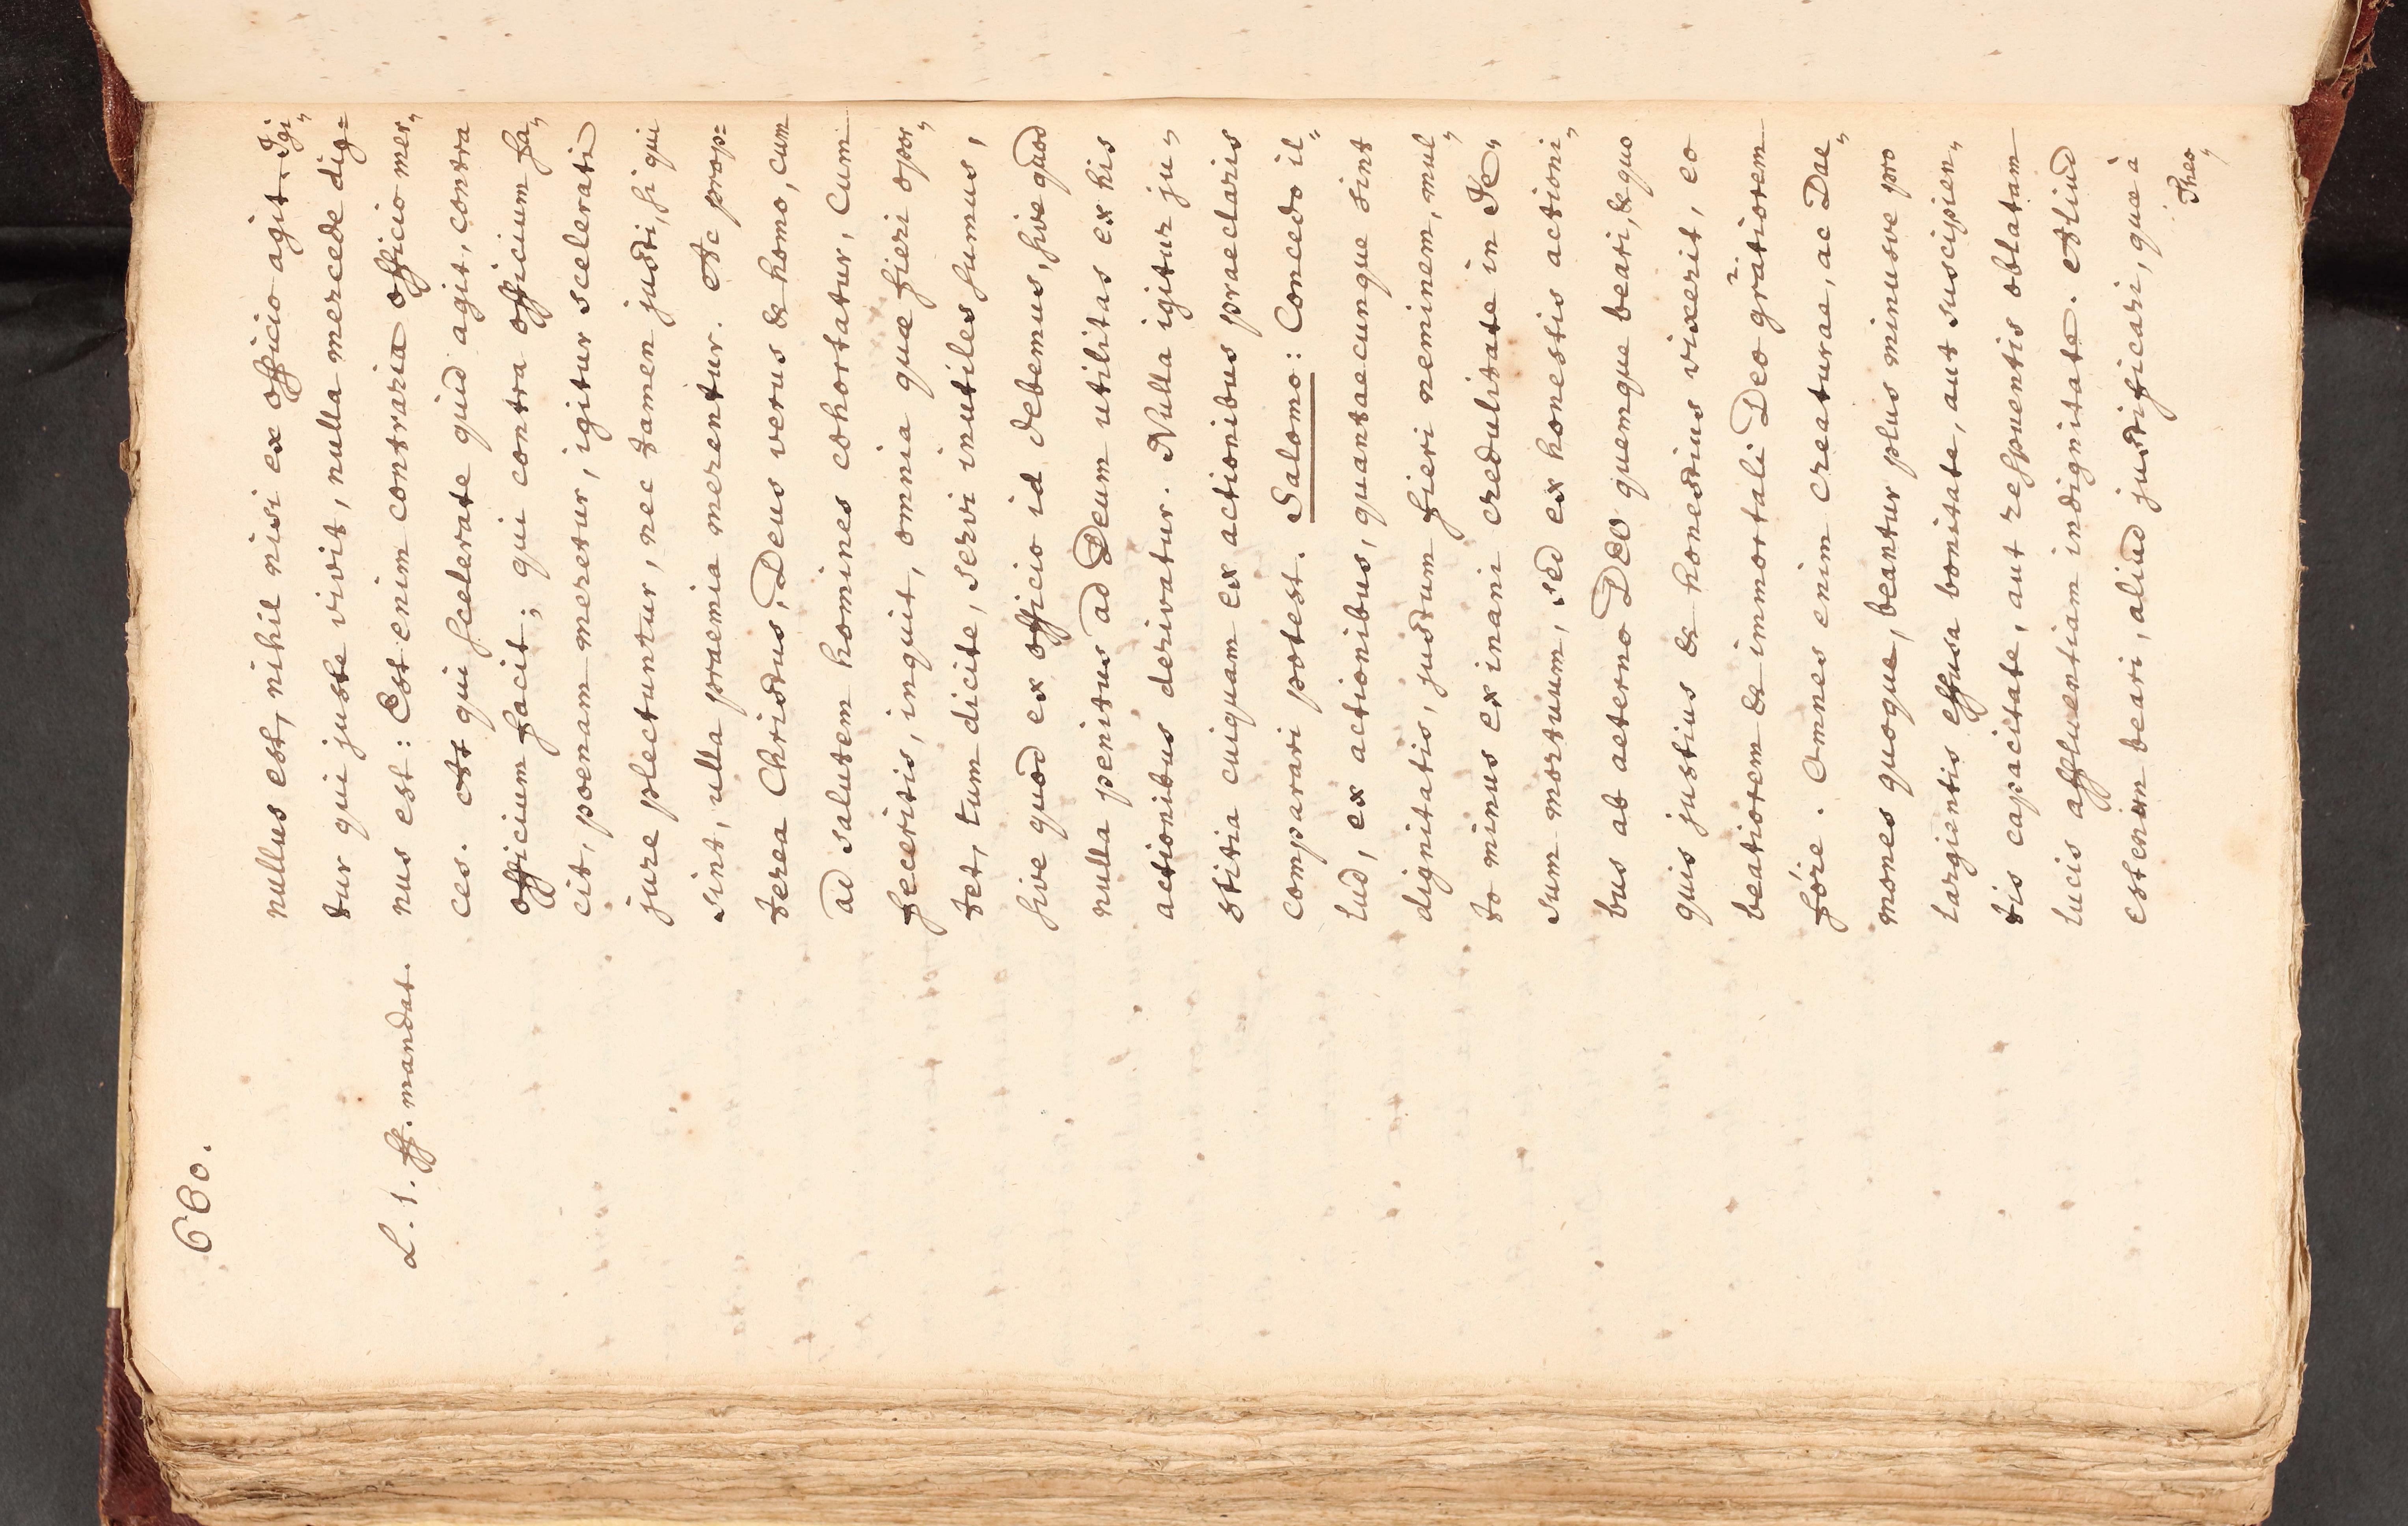 660.
nullus est, nihil nisi ex officio agit. Igi„
tur qui juste vivit, nulla mercede dig=
L. 1. ff. mandat. nus est: Est enim contraria officio mer„
ces. At qui scelerate quid agit, contra
officium facit; qui contra officium fa„
cit, poenam meretur, igitur scelerati
jure plectuntur, nec tamen justi, si qui
sint, ulla praemia merentur. Ac prop=
terea Christus, Deus verus & homo, cum
ad salutem homines cohortatur, Cum
feceritis, inquit, omnia quae fieri opor„
tet, tum dicite, servi inutiles sumus,
sive quod ex officio id debemus, sive quod
nulla penitus ad Deum utilitas ex his
actionibus derivatur. Nulla igitur ju„
stitia cuiquam ex actionibus praeclaris
comparari potest. Salomo: Concedo il„
lud, ex actionibus, quantaecunque sint
dignitatis, justum fieri neminem, mul„
to minus ex inani credulitate in Je„
sum mortuum, sed ex honestis actioni„
bus ab aeterno DEO quemque beari, & quo
quis justius & honestius vixerit, eo
beatiorem & immortali Deo gratiorem
fore. Omnes enim creaturae, ac Dae„
mones quoque, beantur plus minusve pro
largientis effusa bonitate, aut suscipien„
tis capacitate, aut respuentis oblatam
lucis affluentiam indignitate. Aliud
est enim beari, aliud justificari, quae à
Theo„